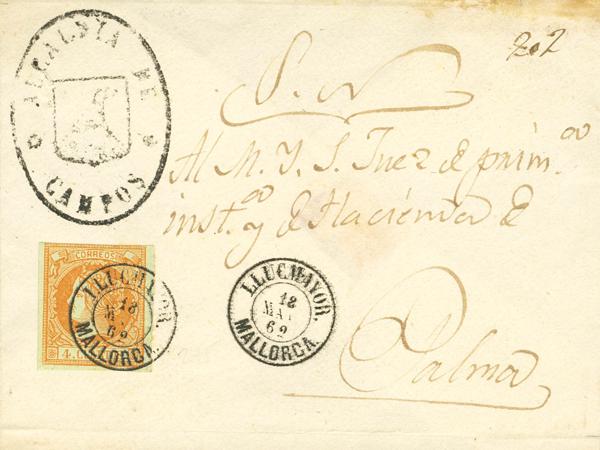 202
ALCALDIA DE
CAMPOS
S. N
Al M. Y. S. Juez de prim.ª
inst.ª y de Hacienda de
Palma
CORREOS
4. C
LLUCMAYOR.
18
MAY
62
MALLORCA
LLUCMAYOR.
18
MAY
62
MALLORCA